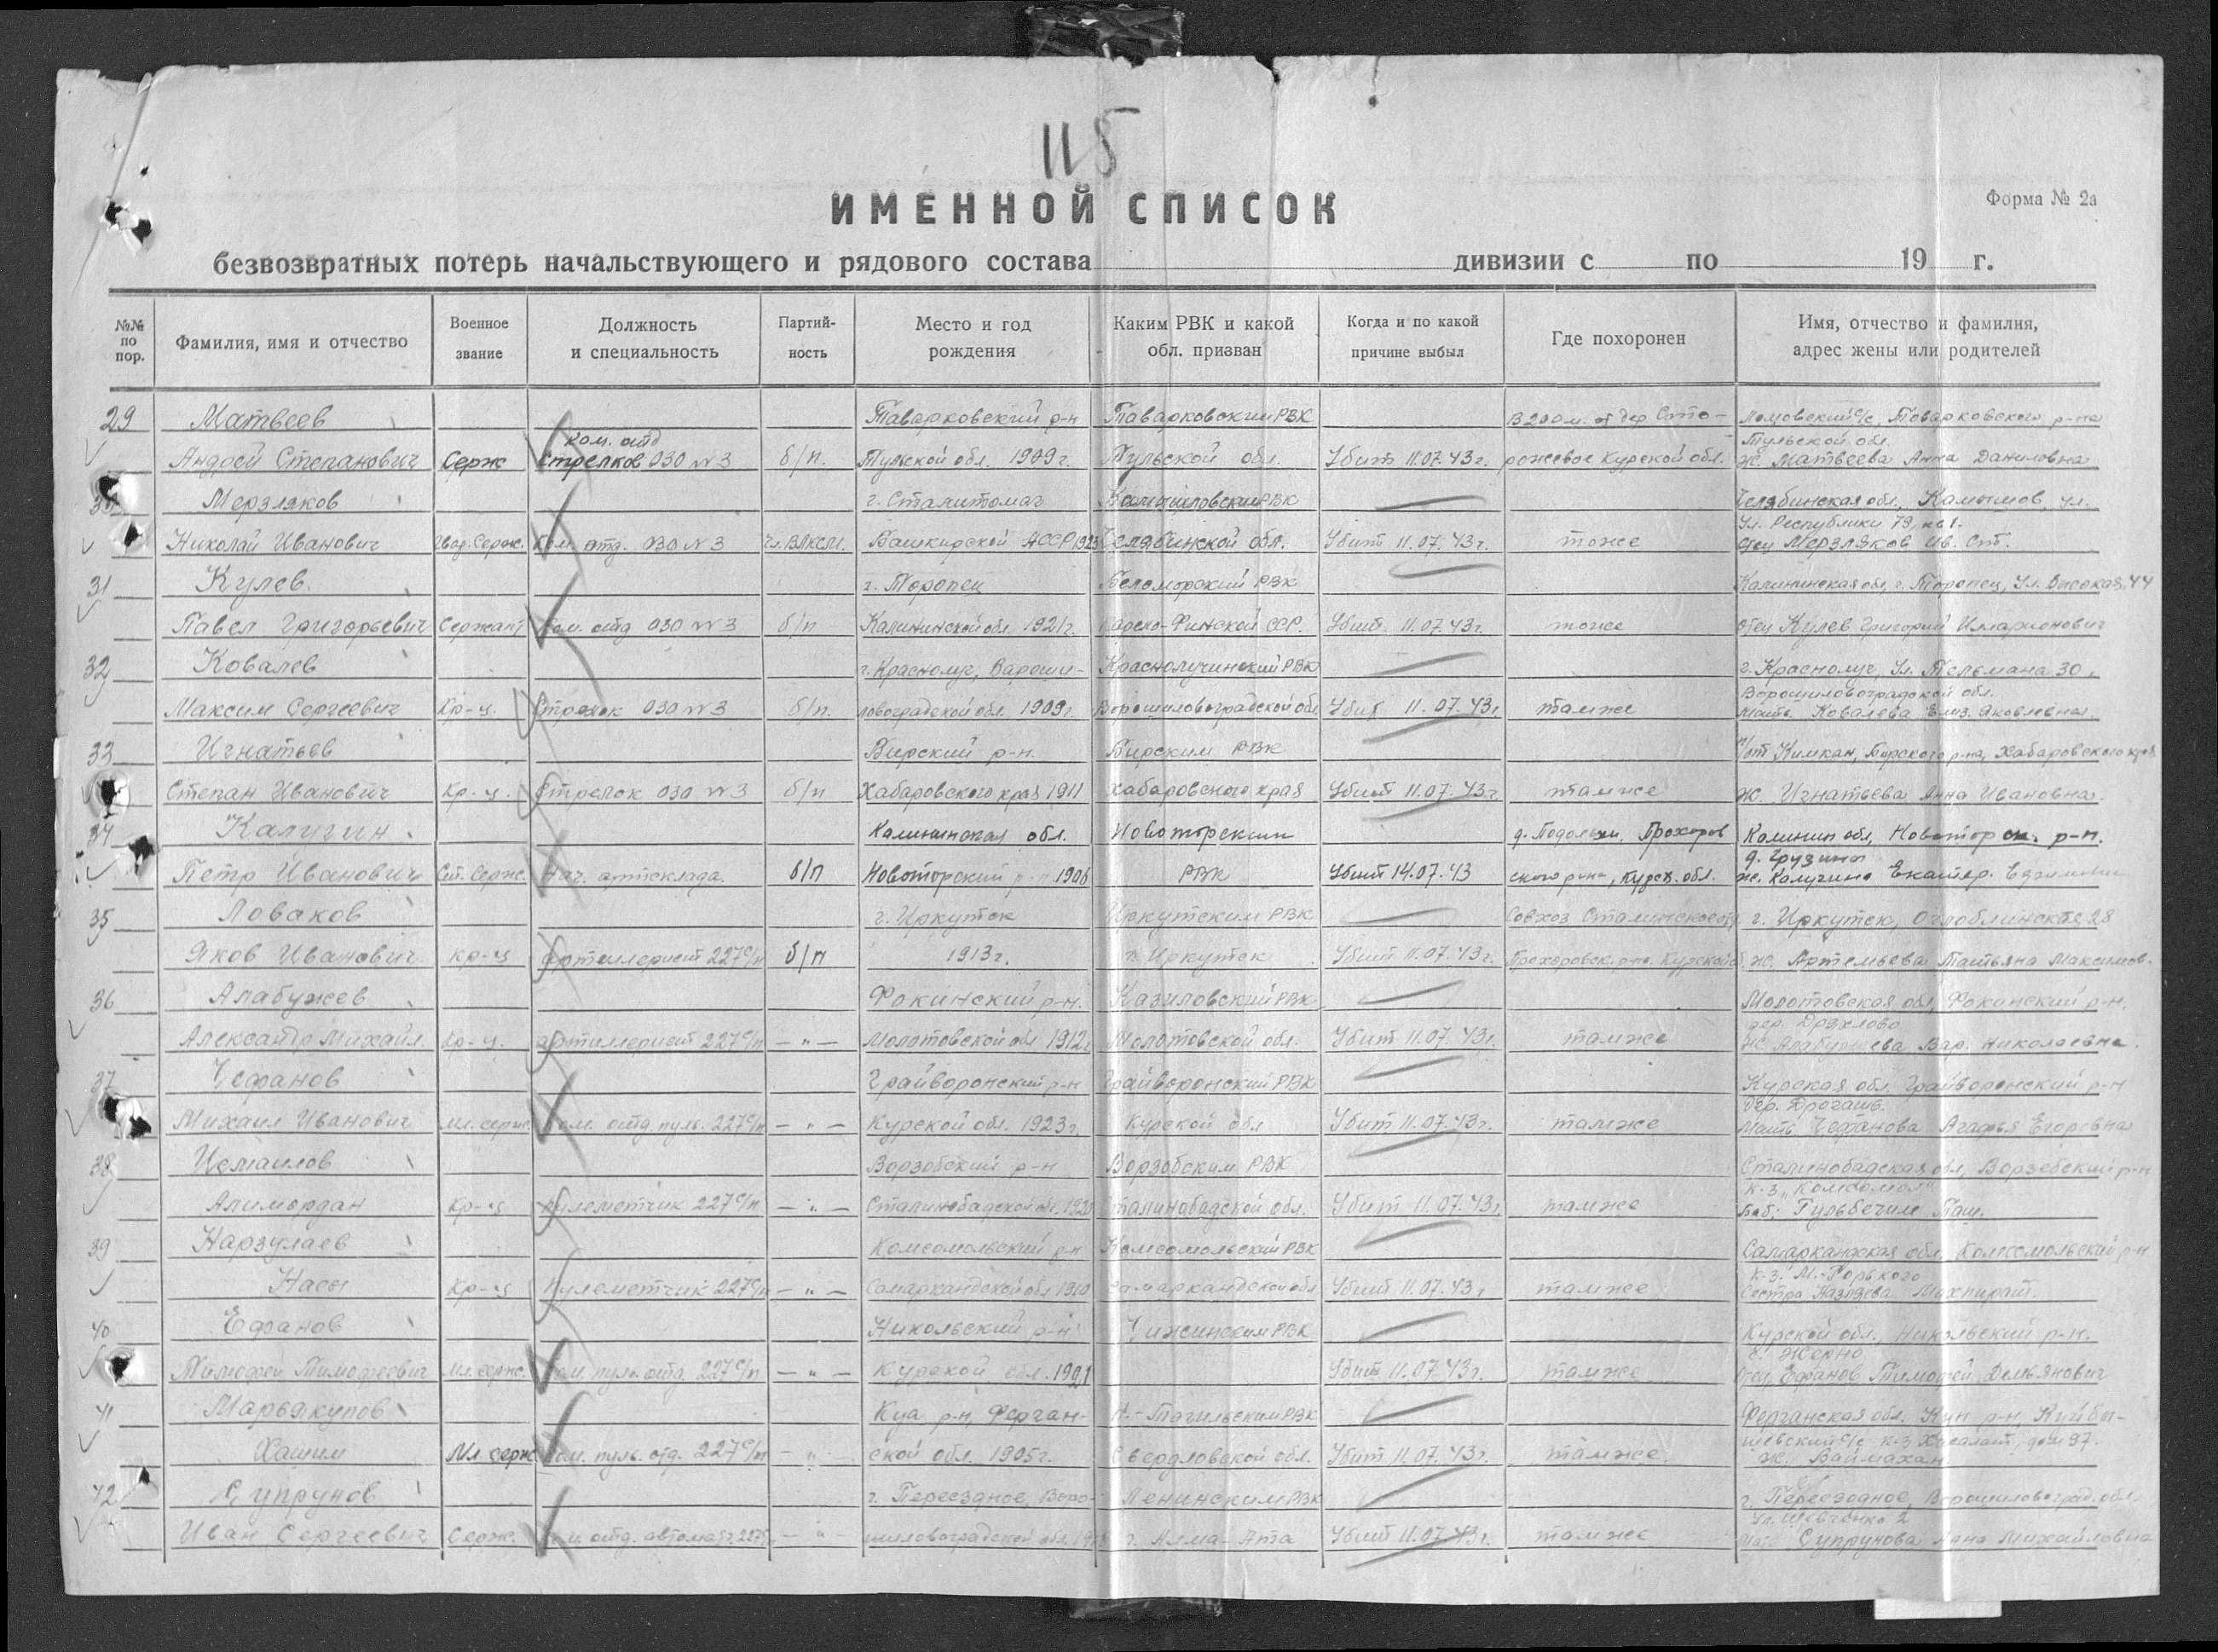 115
ИМЕННОЙ СПИСОК
Форма № 2а
безвозвратных потерь начальствующего и рядового состава дивизии с по 19 г.
№№ по пор.
Фамилия, имя и отчество
Военное звание
Должность и специальность
Партий-ность
Место и год рождения
Каким РВК и какой обл. призван
Когда и по какой причине выбыл
Где похоронен
Имя, отчество и фамилия, адрес жены или родителей
29 Матвеев Таварковский р-н Таварковский РВК В 200 м. от дер Сто- Ломовский с/с, Товарковского р-на
Ком. отд Тульской обл.
Андрей Степанович Серж стрелков ОЗО №3 б/п. Тульской обл. 1909 г. Тульской обл. Убит 11.07.43 г. рожевое Курской обл. ж. Матвеева Анна Даниловна
30 Мерзляков г. Челябинская обл., ул.
Ул. Республики
Николай Иванович Гвад. Серж. Ком. отд. ОЗО №3 чл. ВЛКСМ. Башкирской АССР 1923 Челябинской обл. Убит 11.07.43 г. тоже отец Мерзляков Ив. Ст.
31 Кулев г. Торопец Беломорский РВК Калининская обл, г. Торопец, Ул. Высокая, 44
Павел Григорьевич Сержант Ком. отд ОЗО №3 б/п Калининской обл. 1921 г. Карело-Финской ССР. Убит 11.07.43 г. тоже отец Кулев Григорий Иларионович
32 Ковалев г. Краснолуч, Вароши- Краснолучинский РВК г. Краснолуч, Ул. Тельмана 30,
Ворошиловоградской обл.
Максим Сергеевич Кр-ц. Стрелок ОЗО №3 б/п. ловоградской обл. 1909 г. Ворошиловоградской обл Убит 11.07.43 г. тамже мать Ковалева Елиз. Яковлевна.
33 Игнатьев Бирский р-н. Бирским РВК Кимкан, Бирского р-на, Хабаровского края
Степан Иванович Кр-ц. Стрелок ОЗО №3 б/п Хабаровского края 1911 Хабаровского края Убит 11.07.43 г. тамже ж. Игнатьева Анна Ивановна.
34 Калугин Калининская обл. Новоторским д. Подольхи, Прохоров Калинин обл, Новоторск. р-н.
д. Грузины
Петр Иванович Ст. Серж. Нач. артсклада. б/п Новоторский р-н 1906 РВК Убит 14.07.43 ского р-на, Курск. обл. ж. Калугина Екатер.
35 Ловаков г. Иркутск Иркутским РВК Совхоз Сталинское г. Иркутск, 28
Яков Иванович кр-ц Артиллерист 227 с/п б/п 1913 г. г. Иркутск Убит 11.07.43 г. Прохоровск. р-на. Курской ж. Артемьева Татьяна Максимов.
36 Алабужев Фокинский р-н. РВК Молотовская обл, Фокинский р-н.
дер.
Александр Михайл. Кр-ц. артиллерист 227 с/п — " — Молотовской обл 1912 г Молотовской обл. Убит 11.07.43 г. тамже ж. Алабужева Вар. Николаевна.
37 Чефанов Грайворонский р-н Грайворонский РВК Курская обл. Грайворонский р-н
дер.
Михаил Иванович Мл. серж. Ком. отд. пул. 227 с/п — " — Курской обл. 1923 г. Курской обл Убит 11.07.43 г. тамже Мать Чефанова Агафья Егоровна
38 Исмаилов Ворзобский р-н Ворзобским РВК Сталинобадская обл, Ворзобский р-н
к-з „Комсомол“
Алимордан Кр-ц пулеметчик 227 с/п — " — Сталинобадской обл. 1920 Сталинобадской обл. Убит 11.07.43 г. тамже
39 Нарзулаев Комсомольский р-н Комсомольский РВК Самаркандская обл, Комсомольский р-н
к-з. М.-Горького
Насы Кр-ц пулеметчик 227 с/п — " — Самаркандской обл 1910 Самаркандской обл Убит 11.07.43 г тамже Сестра
40 Ефанов Никольский р-н РВК Курской обл., Никольский р-н.
Тимофей Тимофеевич мл. серж. Ком. пул. отд. 227 с/п — " — Курской обл. 1921 Убит 11.07.43 г. тамже отец Ефанов Тимофей Демьянович
41 Марьякупов Куа р-н, Ферган- Н.-Тагильским РВК Ферганская обл. р-н, Куйбы-
шевский с/с к-з дом 97.
Хашим Мл. серж Ком. пуль. отд. 227 с/п — " — ской обл. 1905 г. Свердловской обл. Убит 11.07.43 г. тамже ж. Баймахан
42 Супрунов г. Переездное, Воро- Ленинским РВК г. Переездное, Ворошиловоград. обл.
Ул. Шевченко 2
Иван Сергеевич Серж. Ком. отд. автомат. — " — шиловоградской обл. г. Алма-Ата Убит 11.07.43 г. тамже Супрунова Анна Михайловна